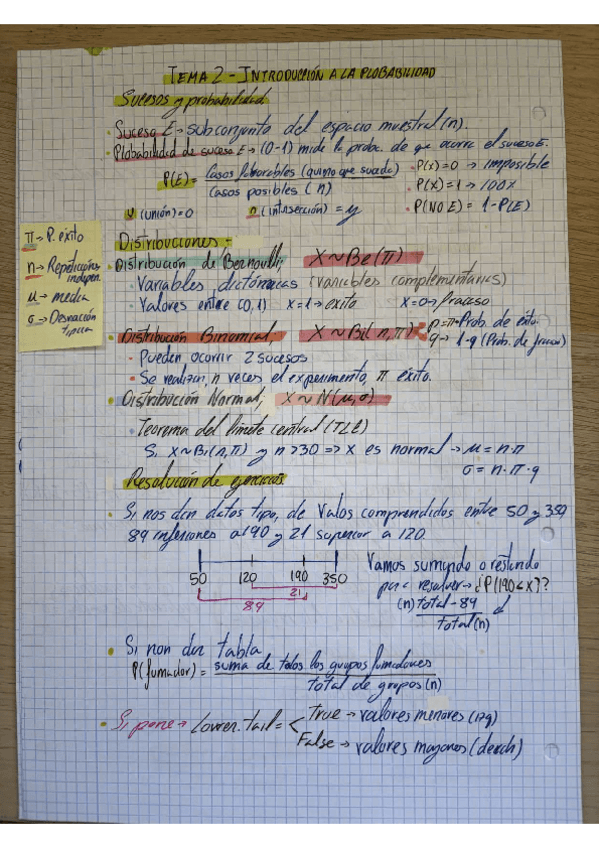 TEMA 2 - INTRODUCCIÓN A LA PROBABILIDAD
Sucesos y probabilidad
· Suceso E → subconjunto del espacio muestral (n).
· Probabilidad de suceso E → (0-1) mide la proba. de que ocurra el suceso E.
P(E) = Casos favorables (quiero que suceda) / Casos posibles (n)
· P(x)=0 → imposible
· P(x)=1 → 100%
· P(NO E) = 1-P(E)
U (unión)=o
∩ (intersección) = y
π → P. éxito
n → Repeticiones indepen.
μ → media
σ → Desviación típica
Distribuciones
· Distribución de Bernoulli; X ~ Be(π)
· Variables dictómicas (variables complementarias)
· Valores entre (0,1) x=1 → exito x=0 → fracaso
· Distribución Binomial, X ~ Bi(n,π)
p=π → Prob. de éxito.
q → 1-q (Prob. de fracaso)
· Pueden ocurrir 2 sucesos
· Se realizan n veces el experimento, π éxito.
· Distribución Normal; X ~ N(μ,σ)
· Teorema del límite central (TLC)
Si X~Bi(n,π) y n>30 => x es normal → μ = n·π
σ = n·π·q
Resolución de ejercicios
· Si nos dan datos tipo, de valos comprendidos entre 50 y 350
89 inferiores a 190 y 21 superior a 120.
50 120 190 350
21
89
Vamos sumando o restando
para resolver → ¿P(190<x)?
(n) total - 89 / total (n)
· Si non dan tabla
P(fumador) = suma de todos los grupos fumadores / total de grupos (n)
· Si pone → Lower.tail = < True → valores menores (izq)
False → valores mayores (derch)